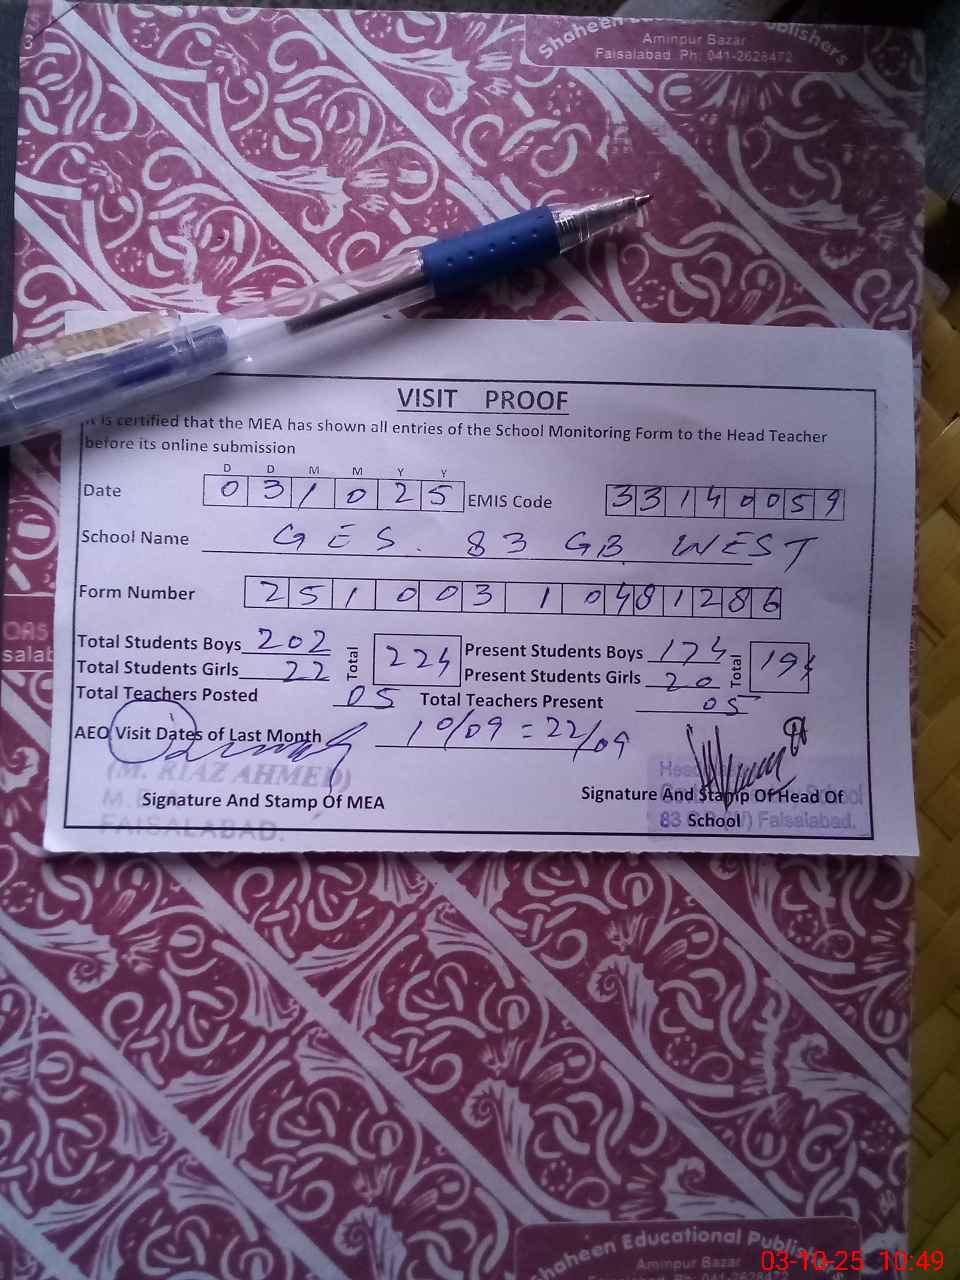 Shaheen Educational Publishers
Aminpur Bazar
Faisalabad Ph: 041-2628472
VISIT PROOF
It is certified that the MEA has shown all entries of the School Monitoring Form to the Head Teacher
before its online submission
D D M M Y Y
Date 031025 EMIS Code 33140059
School Name GES. 83 GB WEST
Form Number 25100310481286
Total Students Boys 202 Total 224 Present Students Boys 174 Total 194
Total Students Girls 22 Present Students Girls 20
Total Teachers Posted 05 Total Teachers Present 05
AEO Visit Dates of Last Month 10/09 = 22/09
(M. RIAZ AHMED)
Signature And Stamp Of MEA
FAISALABAD.
Signature And Stamp Of Head Of
School
83 Faisalabad.
Shaheen Educational Publishers
Aminpur Bazar
03-10-25 10:49